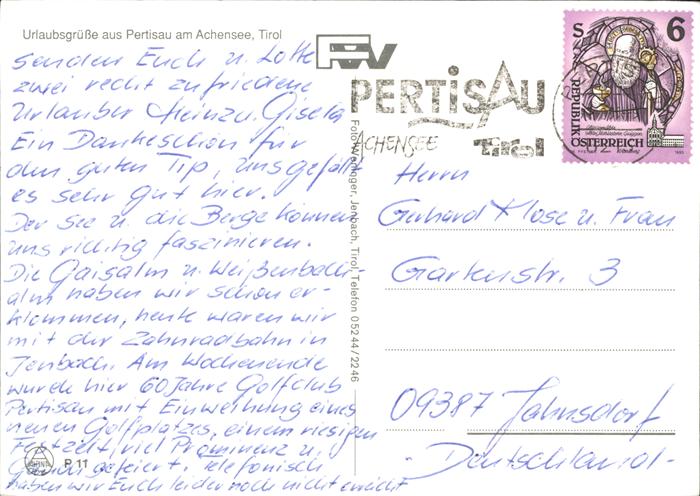 Urlaubsgrüße aus Pertisau am Achensee, Tirol
senden Euch u. Lotte
zwei recht zufriedene
Urlauber Heinz u. Gisela
Ein Dankeschön für
den guten Tip, uns gefällt
es sehr gut hier.
Der See u. die Berge können
uns richtig faszinieren.
Die Gaisalm u. Weißenbach-
alm haben wir schon er-
klommen, heute waren wir
mit der Zahnradbahn in
Jenbach. Am Wochenende
wurde hier 60 Jahre Golfclub
Pertisau mit Einweihung eines
neuen Golfplatzes, einem riesigen
Festzelt, viel Prominenz u.
gefeiert. Telefonisch
haben wir Euch leider noch nicht erreicht
P 11
Foto Weninger, Jenbach, Tirol, Telefon 05244/2246
PERTISAU
ACHENSEE
Tirol
S 6
REPUBLIK
ÖSTERREICH
Herrn
Gerhard Klose u. Frau
Gartenstr. 3
09387 Jahnsdorf
- Deutschland -